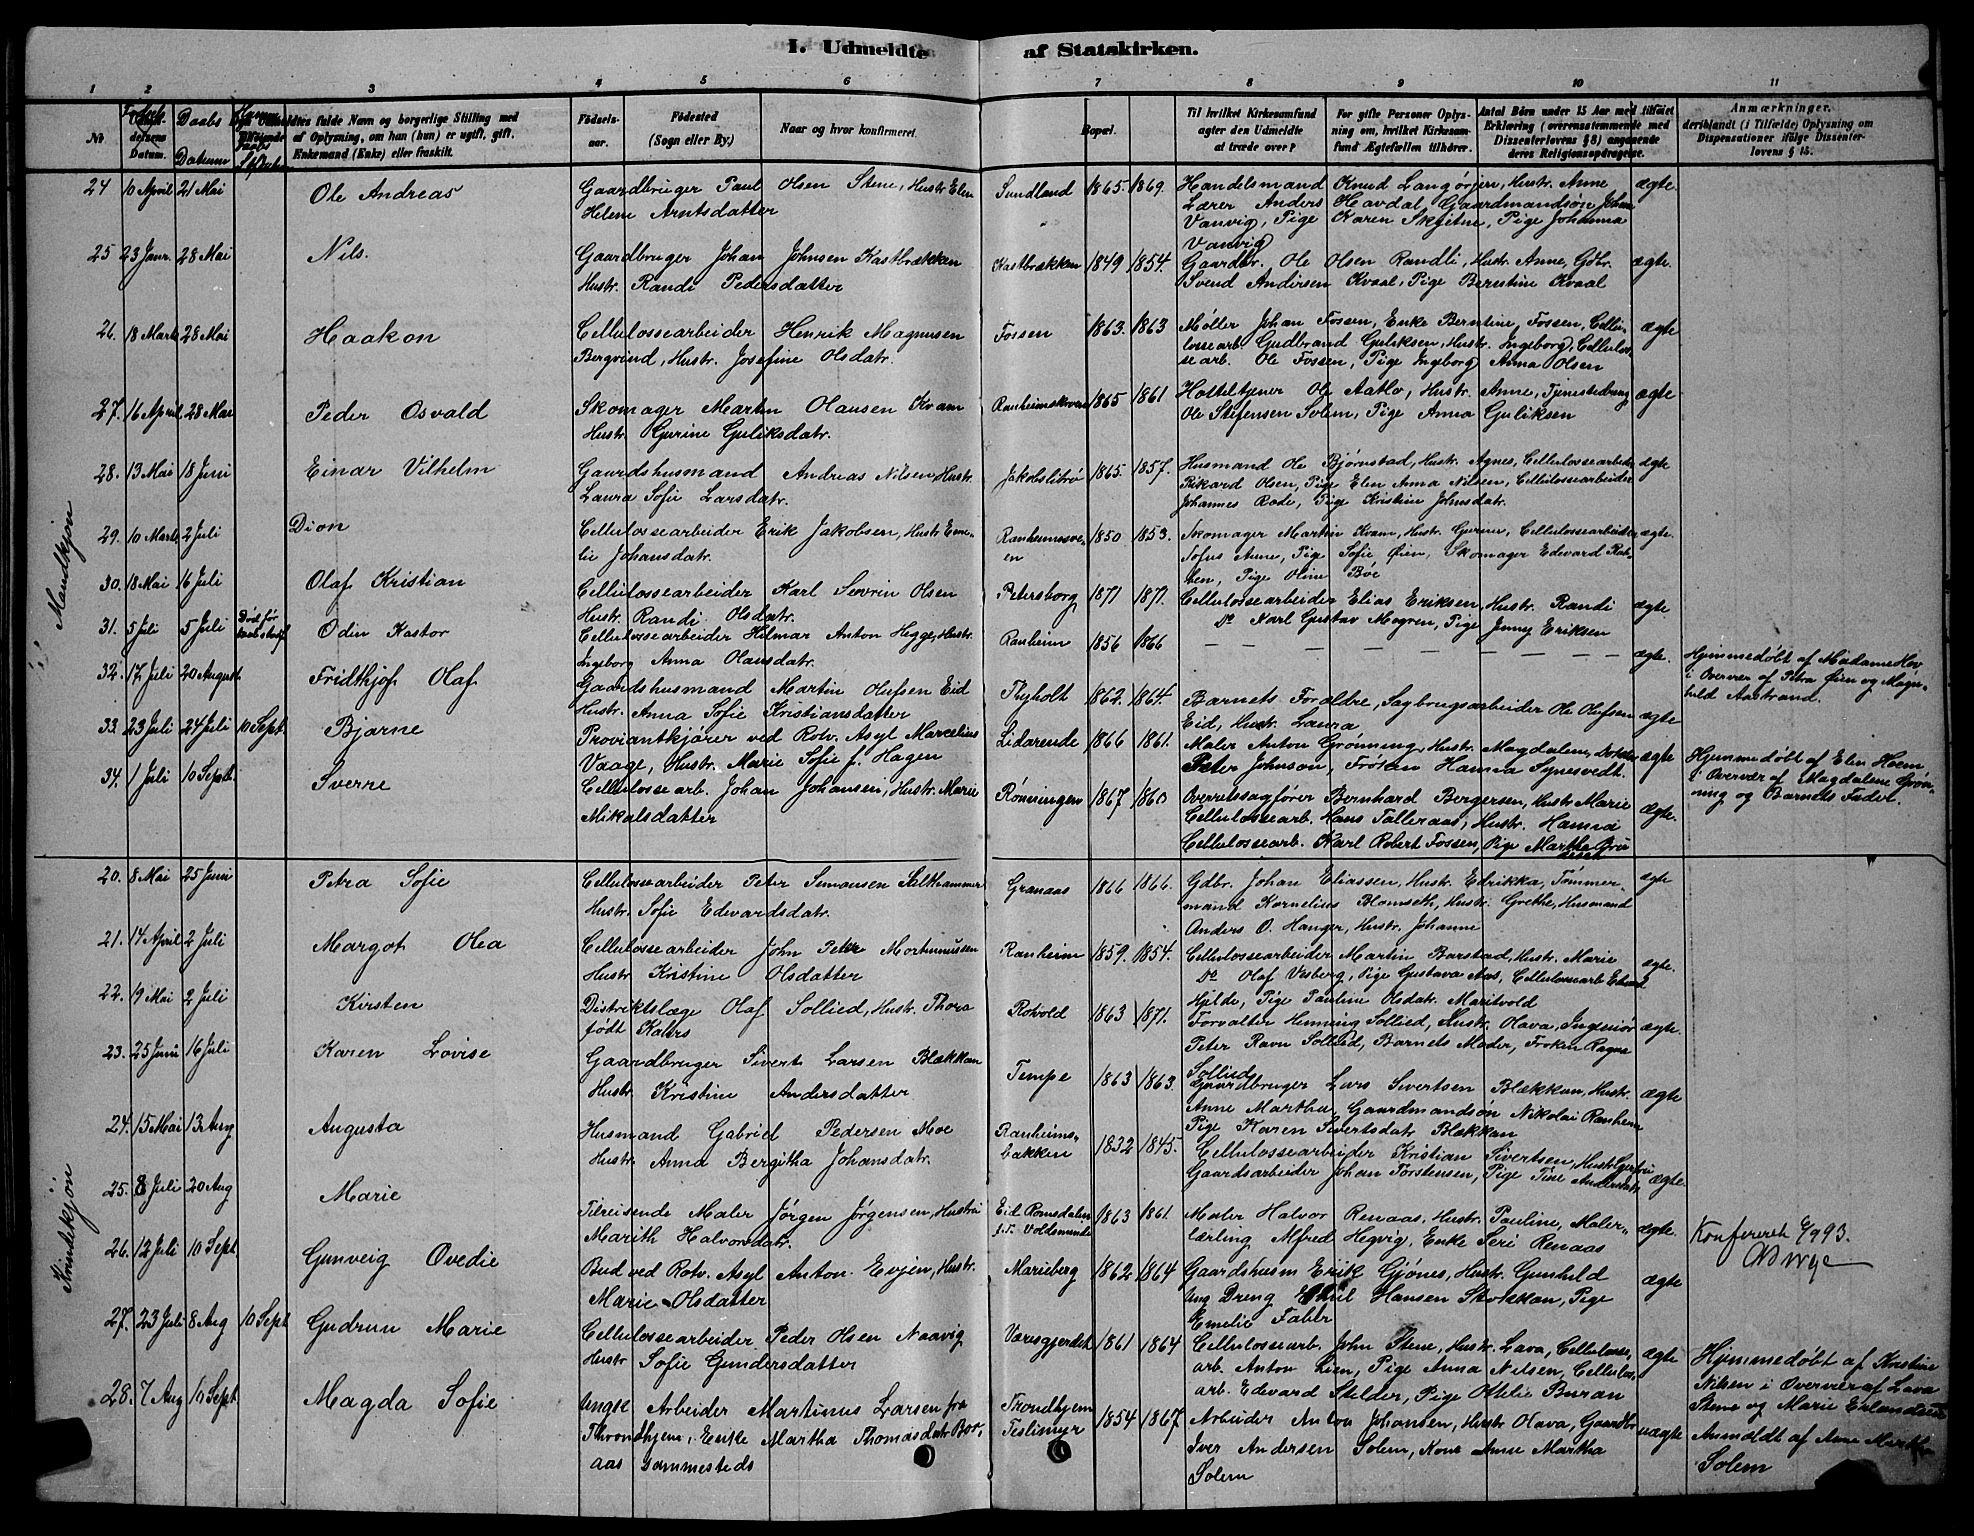 I. Udmeldte af Statskirken.
1 2 3 4 5 6 7 8 9 10 11
No
Daabs
Datum
delsens
Datum.
Udmeldtes fulde Navn og borgerlige Stilling med
af Oplysning, om han (hun) er ugift, gift,
Enkemand (Enke) eller fraskilt.
Fødsels-
aar.
Fødested
(Sogn eller By.)
Naar og hvor konfirmeret.
Bopæl.
Til hvilket Kirkesamfund
agter den Udmeldte
at træde over?
For gifte Personer Oplys-
ning om, hvilket Kirkesam-
fund Ægtefællen tilhører.
Antal Børn under 15 Aar med tilføiet
Erklæring (overensstemmende med
Dissenterlovens § 8) angaaende
deres Religionsopdragelse.
Anmærkninger,
deriblandt (i Tilfælde) Oplysning om
Dispensationer ifølge Dissenter-
lovens § 15.
Mandkjøn
24 10 April 21 Mai Ole Andreas Gaardbruger Paul Olsen Stene, Hustr. Elen Sundland 1865. 1869. Handelsmand Knud Langørgen, Hustr. Anne ægte
Helene Arntsdatter Lærer Anders Havdal, Gaardmandsøn Johan
Vanvig, Pige Karen Skjetne, Pige Johanna
Vanvig
25 23 Janr. 28 Mai Nils. Gaardbruger Johan Johnsen Kastbrækken Kastbrækken 1849 1854. Gaardbr. Ole Olsen Randli, Hustr. Anne, Gdbr. ægte.
Hustr. Randi Pedersdatter Svend Andersen Kvaal, Pige Berntine Kvaal
26. 18 Marts 28 Mai Haakon Cellulossearbeider Henrik Magnusen Fossen 1863. 1863 Møller Johan Fossen, Enke Berntine Fossen, Cellu- ægte
Bergvind, Hustr. Josefine Olsdatr. lossearb. Gudbrand Guliksen, Hustr. Ingeborg, Cellulos-
searb. Ole Fossen, Pige Ingeborg Anna Olsen
27. 16 April 28 Mai Peder Osvald Skomager Martin Olausen Kvam 1865 1861 Ole Aatlo, Hustr. Anne, ægte
Hustr. Gurine Guliksdatr. Ole Stefensen Solem, Pige Anna Guliksen
28. 13 Mai 18 Juni Einar Vilhelm Gaardshusmand Andreas Nilsen, Hustr. Jakobslitrø 1865. 1857. Husmand Ole Bjørnstad, Hustr. Agnes, Cellulossearbeider ægte
Laura Sofie Larsdatr. Rikard Olsen, Pige Elen Anna Nilsen, Cellulossearbeider
Johannes Rode, Pige Kristine Johnsdatr.
29. 10 Marts 2 Juli Dion Cellulossearbeider Erik Jakobsen, Hustr. Eme- Ranheimsve- 1850 1853. Skomager Martin Kvam, Hustr. Gurine, Cellulossearbeider ægte.
lie Johansdatr. en Sofus Aune, Pige Sofie Øien, Skomager Edevard
Pige Oline Bøe
30. 18 Mai 16 Juli Olaf Kristian Cellulossearbeider Karl Severin Olsen Petersborg 1871 1871. Cellulossearbeider Elias Eriksen, Hustr. Randi ægte
Hustr. Randi Olsdatr. Do Karl Gustav Mogren, Pige Jenny Eriksen
31. 5 Juli 5 Juli Død før Odin Kastor Cellulossearbeider Hilmar Anton Hegge, Hustr. Ranheim 1856 1866 — — — — — — ægte. Hjemmedøbt af Madame Hov
Ingeborg Anna Olausdatr. i Overvær af Petra Øien og Magn-
hild Aastrand.
32. 17 Juli 20 August Fridthjof Olaf Gaardshusmand Martin Olufsen Eid Thyholt 1862. 1864. Barnets Forældre, Sagbrugsarbeider Ole Olufsen ægte
Hustr. Anna Sofie Kristiansdatter Eid, Hustr. Laura
33. 23 Juli 24 Juli 10 Sept. Bjarne Proviantkjører ved Rotv. Asyl Marcelius Lidarende 1866 1861. Maler Anton Grønning, Hustr. Magdalene, ægte Hjemmedøbt af Elen Hoem
Vaage, Hustr. Marie Sofie f. Hagen Peter Johnson, Frøken Hanna Synesvedt. i Overvær af Magdalene Grøn-
ning og Barnets Fader.
34. 1 Juli 10 Septb. Sverre Cellulossearb. Johan Johansen, Hustr. Marie Rønningen 1867 1860 Overretssagfører Bernhard Bergersen, Hustr. Marie ægte.
Mikalsdatter Cellulossearb. Hans Talleraas, Hustr. Hanna
Cellulossearb. Karl Robert Fossen, Pige Martha
Kvindekjøn
20. 8 Mai 25 Juni Petra Sofie Cellulossearbeider Peter Simonsen Salthammer Granaas 1866 1866. Gdbr. Johan Eliassen, Hustr. Edrikka, Tømmer- ægte
Hustr. Sofie Edevardsdatr. mand Kornelius Blomseth, Hustr. Grethe, Husmand
Anders O. Hanger, Hustr. Johanne
21. 14 April 2 Juli Margot Olea Cellulossearbeider John Peter Mortinussen Ranheim 1859. 1854. Cellulossearbeider Martin Barstad, Hustr. Marie ægte.
Hustr. Kristine Olsdatter Do Olaf Vesberg, Pige Gustava Aas, Cellulossearb.
Hjelde, Pige Pauline Olsdatr. Maritvold
22. 9 Mai 2 Juli Kirsten Distriktslæge Olaf Sollied, Hustr. Thora Rotvold 1863 1871. Forvalter Henning Sollied, Hustr. Olava, Ingeniør ægte.
født Kaurs Peter Ravn Sollied, Barnets Moder, Frøken Ragna
Sollied
23. 25 Juni 16 Juli Karen Lovise Gaardbruger Sivert Larsen Blækkan Tempe 1863 1863. Gaardbruger Lars Sivertsen Blækkan, Hustr. ægte
Hustr. Kristine Andersdatter Anne Martha, Gaardmandsøn Nikolai Ranheim
Pige Karen Sivertsdatr. Blækkan
24. 15 Mai 13. Aug Augusta Husmand Gabriel Pedersen Moe Ranheims- 1832 1845. Cellulossearbeider Kristian Sivertsen, Hustr. ægte
Hustr. Anna Bergitha Johansdatr. bakken Gaardsarbeider Johan Torstensen, Pige Tine Andersdatr.
25. 8 Juli 20 Aug Marie Tilreisende Maler Jørgen Jørgensen, Hustru Eid Romsdalen 1863 1861. Maler Halvor Renaas, Hustr. Pauline, Maler- ægte.
Marith Halvorsdatr. f.T. Voldsminde lærling Alfred Hegvig, Enke Seri Renaas
Konfereret 9/9 93.
26. 12 Juli 10 Sept. Gunveig Ovedie Bud ved Rotv. Asyl Anton Evjen, Hustr. Marieberg 1862 1864 Gaardshusm Erik Gjønes, Hustr. Gunhild ægte
Marie Olsdatter Ung Dreng Emil Hansen Stokkan, Pige
Emelie Faber
27. 23 Juli 8 Aug 10 Sept. Gudrun Marie Cellulossearbeider Peder Olsen Naavig Væresgjerdet 1861 1864 Cellulossearb. John Stene, Hustr. Lava, Cellulosse- ægte Hjemmedøbt af Kristine
Hustr Sofie Gundersdatter arb. Anton Lien, Pige Anna Nilsen, Cellulos- Nilsen i Overvær af Lava
arb. Edevard Stelder, Pige Othelie Buran Stene og Marie
28. 7 Aug 10 Sept. Magda Sofie Ungk. Arbeider Martinus Larsen fra Trondhjem 1854 1867 Arbeider Anton Johansen, Hustr. Olava, Gaardbr. uægte Anmeldt af Ane Martha
Throndhjem, Enke Martha Thomasdatr. Teslimyr Iver Andersen Solem, Kone Anne Martha Solem
aas sammesteds Solem